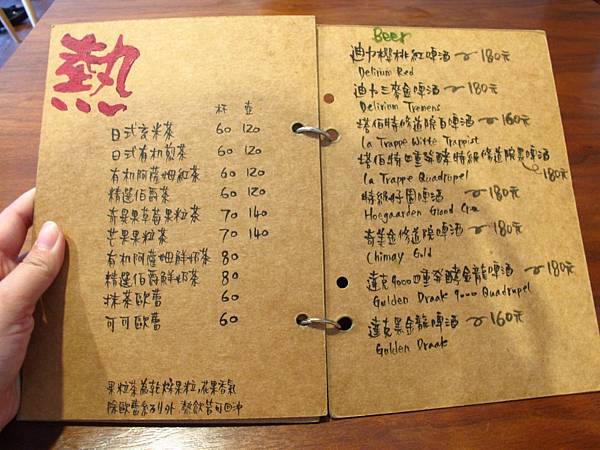 熱
杯 壺
日式玄米茶 60 120
日式有机煎茶 60 120
有机阿薩姆紅茶 60 120
精選伯爵茶 60 120
奇異果草莓果粒茶 70 140
芒果果粒茶 70 140
有机阿薩姆鮮奶茶 80
精選伯爵鮮奶茶 80
抹茶歐蕾 60
可可歐蕾 60
果粒茶為乾燥果粒,花果香氣
除歐蕾系列外 熱飲皆可回沖
Beer
迪力櫻桃紅啤酒 ~180元
Delirium Red
迪力三麥金啤酒 ~180元
Delirium Tremens
塔伯特修道院白啤酒 ~160元
La Trappe Witte Trappist
塔伯特四重發酵特級修道院黑啤酒 ~180元
La Trappe Quadrupel
特級好園啤酒 ~180元
Hoegaarden Grand Cru
奇美金修道院啤酒 ~180元
Chimay Gold
達克9000四重發酵金龍啤酒 ~180元
Gulden Draak 9000 Quadrupel
達克黑金龍啤酒 ~160元
Gulden Draak